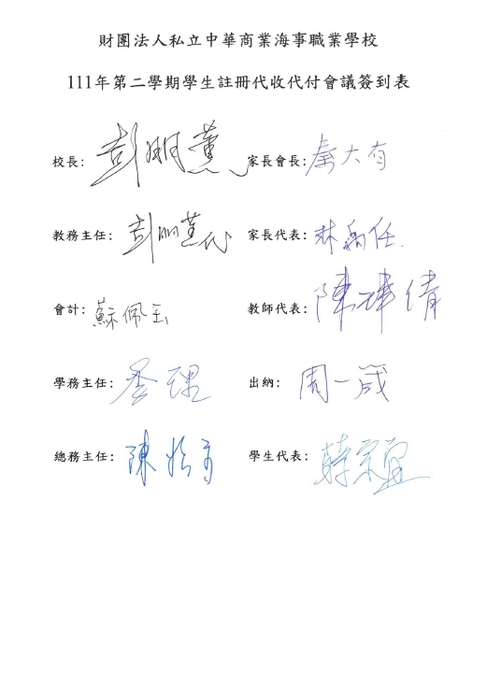 財團法人私立中華商業海事職業學校
111年第二學期學生註冊代收代付會議簽到表
校長: 彭明薰 家長會長: 秦大有
教務主任: 彭明薰代 家長代表: 林
會計: 蘇佩玉 教師代表: 陳 倩
學務主任: 出納: 周一
總務主任: 陳 學生代表: